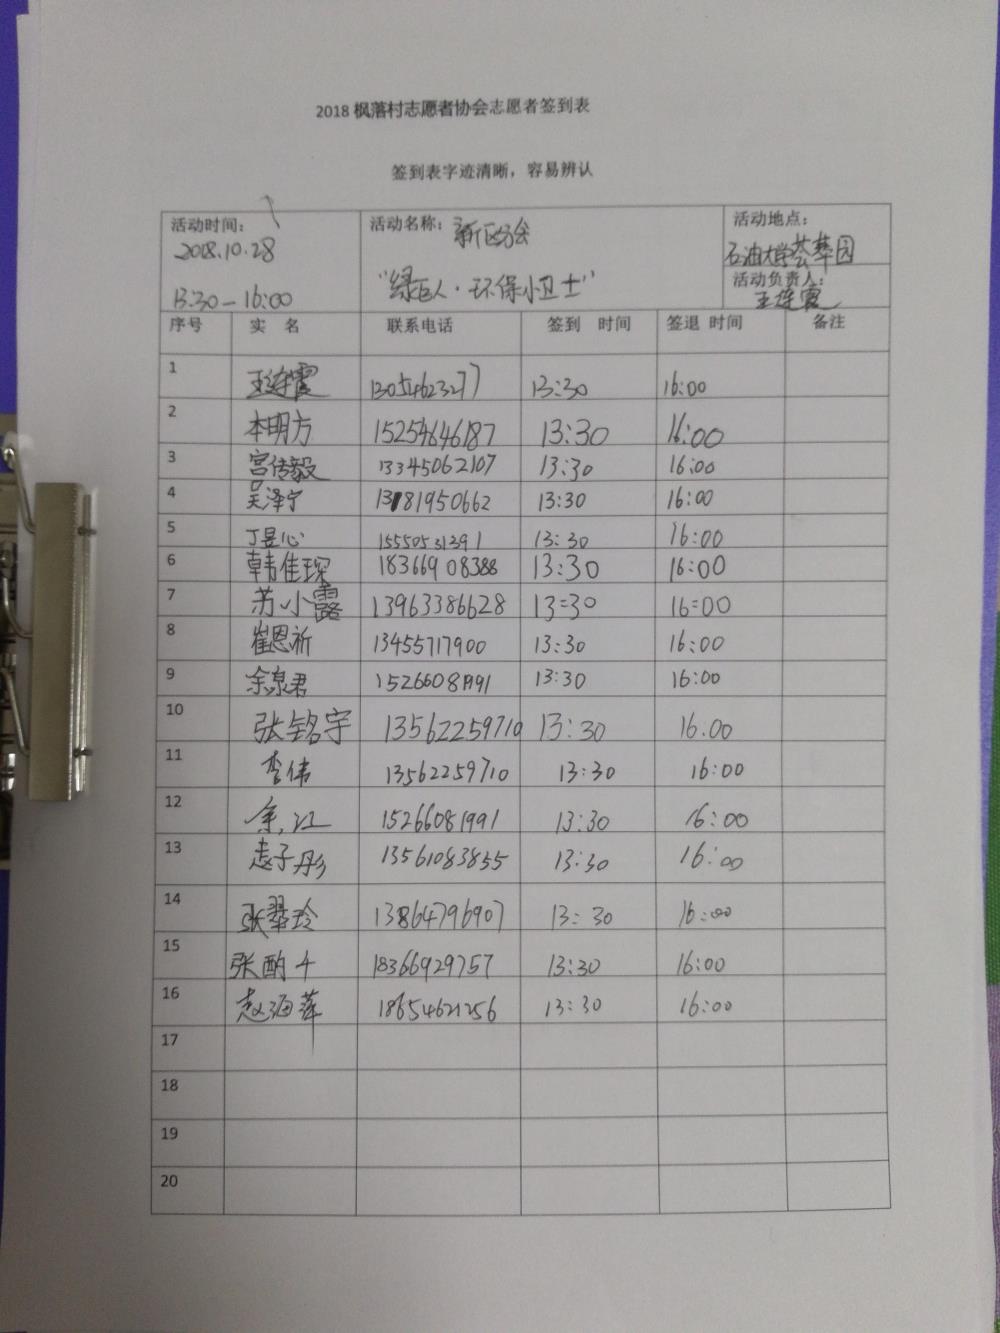 2018 枫落村志愿者协会志愿者签到表
签到表字迹清晰，容易辨认
活动时间： 活动名称：新区分会 活动地点：
2018.10.28 石油大学荟萃园
"绿巨人·环保小卫士" 活动负责人：
13:30-16:00 王连霞
序号 实 名 联系电话 签到 时间 签退 时间 备注
1 王连霞 13054623277 13:30 16:00
2 本明方 15254646187 13:30 16:00
3 宫传毅 13345062107 13:30 16:00
4 吴泽宁 13181950662 13:30 16:00
5 丁昱心 15550531391 13:30 16:00
6 韩佳琛 18366908388 13:30 16:00
7 苏小露 13963386628 13:30 16:00
8 崔恩祈 13455717900 13:30 16:00
9 余泉君 15266081991 13:30 16:00
10 张铭宇 13562259710 13:30 16:00
11 李伟 13562259710 13:30 16:00
12 余江 15266081991 13:30 16:00
13 子彤 13561083855 13:30 16:00
14 张翠玲 13864796907 13:30 16:00
15 张酌千 18366929757 13:30 16:00
16 赵海萍 18654621256 13:30 16:00
17
18
19
20